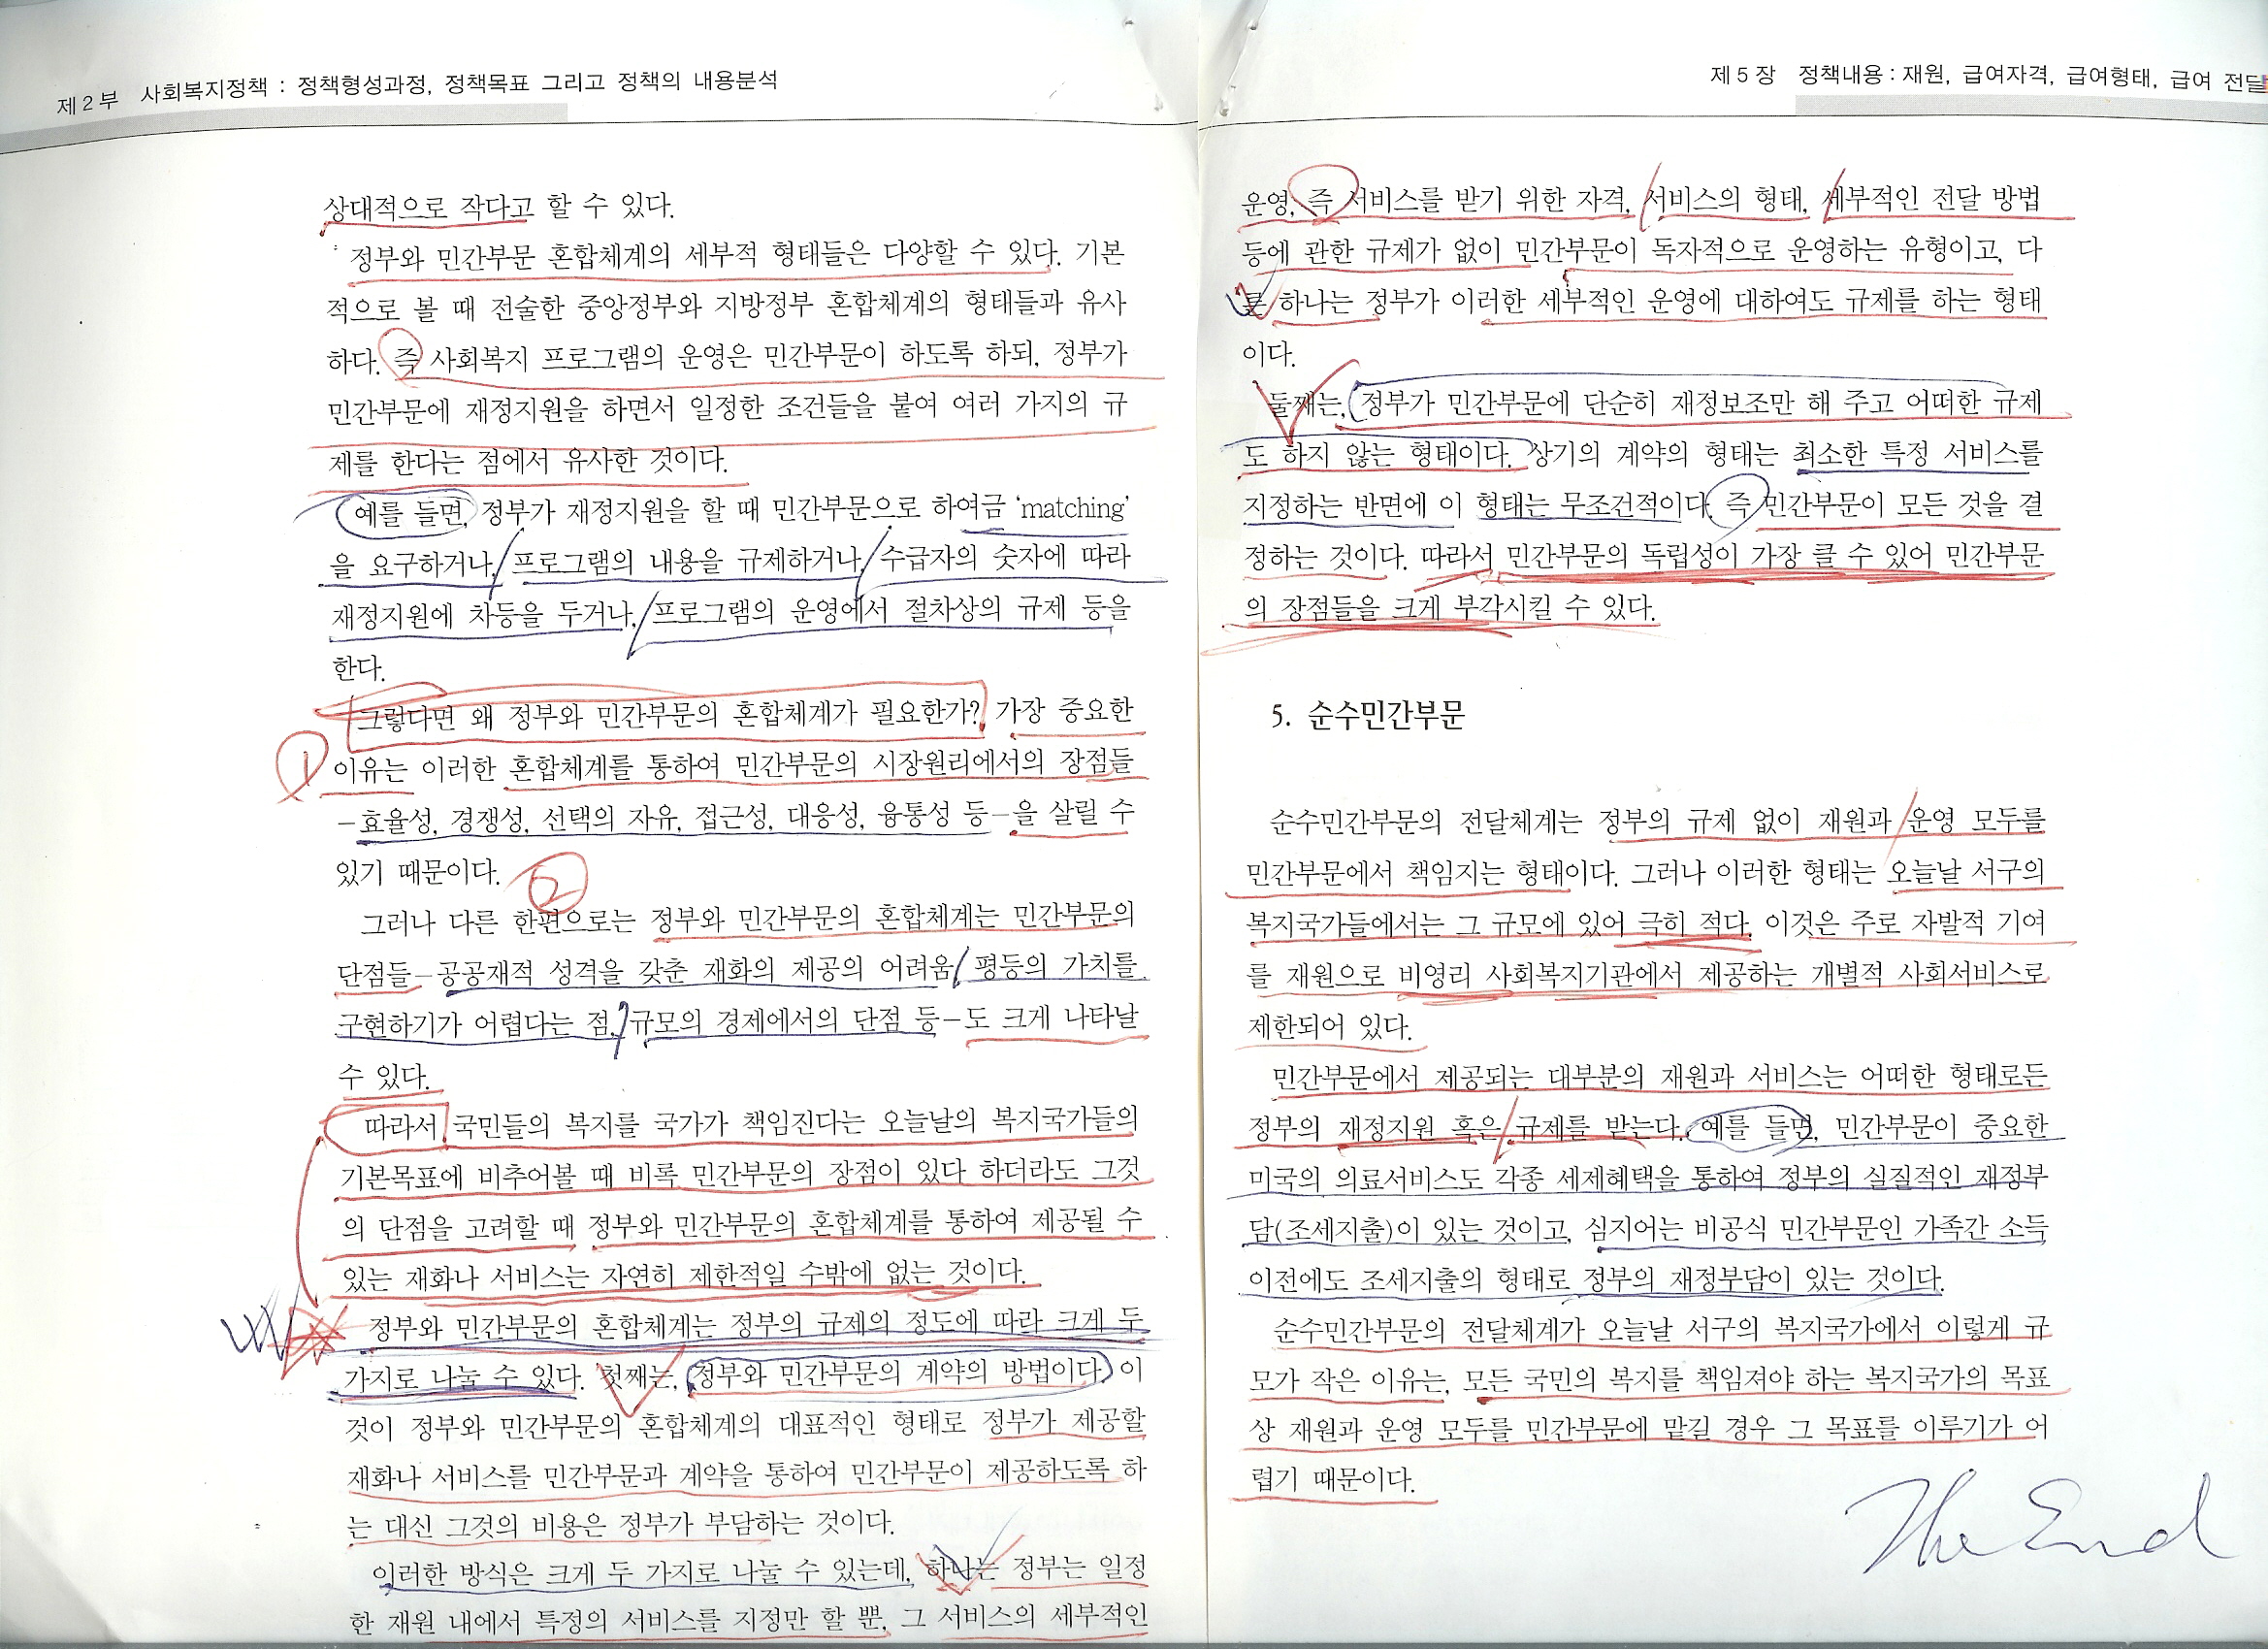 제 2 부 사회복지정책 : 정책형성과정, 정책목표 그리고 정책의 내용분석
상대적으로 작다고 할 수 있다.
정부와 민간부문 혼합체계의 세부적 형태들은 다양할 수 있다. 기본
적으로 볼 때 전술한 중앙정부와 지방정부 혼합체계의 형태들과 유사
하다. 즉 사회복지 프로그램의 운영은 민간부문이 하도록 하되, 정부가
민간부문에 재정지원을 하면서 일정한 조건들을 붙여 여러 가지의 규
제를 한다는 점에서 유사한 것이다.
예를 들면, 정부가 재정지원을 할 때 민간부문으로 하여금 ‘matching’
을 요구하거나, 프로그램의 내용을 규제하거나, 수급자의 숫자에 따라
재정지원에 차등을 두거나, 프로그램의 운영에서 절차상의 규제 등을
한다.
그렇다면 왜 정부와 민간부문의 혼합체계가 필요한가? 가장 중요한
1 이유는 이러한 혼합체계를 통하여 민간부문의 시장원리에서의 장점들
–효율성, 경쟁성, 선택의 자유, 접근성, 대응성, 융통성 등–을 살릴 수
있기 때문이다. 2
그러나 다른 한편으로는 정부와 민간부문의 혼합체계는 민간부문의
단점들–공공재적 성격을 갖춘 재화의 제공의 어려움, 평등의 가치를
구현하기가 어렵다는 점, 규모의 경제에서의 단점 등–도 크게 나타날
수 있다.
따라서 국민들의 복지를 국가가 책임진다는 오늘날의 복지국가들의
기본목표에 비추어볼 때 비록 민간부문의 장점이 있다 하더라도 그것
의 단점을 고려할 때 정부와 민간부문의 혼합체계를 통하여 제공될 수
있는 재화나 서비스는 자연히 제한적일 수밖에 없는 것이다.
정부와 민간부문의 혼합체계는 정부의 규제의 정도에 따라 크게 두
가지로 나눌 수 있다. 첫째는, 정부와 민간부문의 계약의 방법이다. 이
것이 정부와 민간부문의 혼합체계의 대표적인 형태로 정부가 제공할
재화나 서비스를 민간부문과 계약을 통하여 민간부문이 제공하도록 하
는 대신 그것의 비용은 정부가 부담하는 것이다.
이러한 방식은 크게 두 가지로 나눌 수 있는데, 하나는 정부는 일정
한 재원 내에서 특정의 서비스를 지정만 할 뿐, 그 서비스의 세부적인
제 5 장 정책내용 : 재원, 급여자격, 급여형태, 급여 전달
운영, 즉 서비스를 받기 위한 자격, 서비스의 형태, 세부적인 전달 방법
등에 관한 규제가 없이 민간부문이 독자적으로 운영하는 유형이고, 다
른 하나는 정부가 이러한 세부적인 운영에 대하여도 규제를 하는 형태
이다.
둘째는, 정부가 민간부문에 단순히 재정보조만 해 주고 어떠한 규제
도 하지 않는 형태이다. 상기의 계약의 형태는 최소한 특정 서비스를
지정하는 반면에 이 형태는 무조건적이다. 즉 민간부문이 모든 것을 결
정하는 것이다. 따라서 민간부문의 독립성이 가장 클 수 있어 민간부문
의 장점들을 크게 부각시킬 수 있다.
5. 순수민간부문
순수민간부문의 전달체계는 정부의 규제 없이 재원과 운영 모두를
민간부문에서 책임지는 형태이다. 그러나 이러한 형태는 오늘날 서구의
복지국가들에서는 그 규모에 있어 극히 적다. 이것은 주로 자발적 기여
를 재원으로 비영리 사회복지기관에서 제공하는 개별적 사회서비스로
제한되어 있다.
민간부문에서 제공되는 대부분의 재원과 서비스는 어떠한 형태로든
정부의 재정지원 혹은 규제를 받는다. 예를 들면, 민간부문이 중요한
미국의 의료서비스도 각종 세제혜택을 통하여 정부의 실질적인 재정부
담(조세지출)이 있는 것이고, 심지어는 비공식 민간부문인 가족간 소득
이전에도 조세지출의 형태로 정부의 재정부담이 있는 것이다.
순수민간부문의 전달체계가 오늘날 서구의 복지국가에서 이렇게 규
모가 작은 이유는, 모든 국민의 복지를 책임져야 하는 복지국가의 목표
상 재원과 운영 모두를 민간부문에 맡길 경우 그 목표를 이루기가 어
렵기 때문이다.
The End